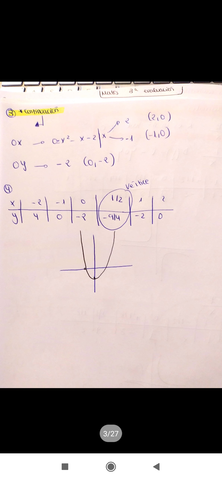 Mates 1º
③ * continuación
OX → 0=x² - x - 2 | x 2 (2,0)
-1 (-1,0)
OY → -2 (0,-2)
④
vértice
x | -2 | -1 | 0 | 1/2 | 1 | 2
y | 4 | 0 | -2 | -9/4 | -2 | 0
3/27